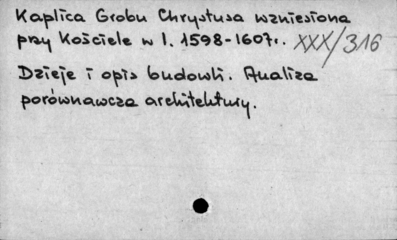 Kaplica Grobu Chrystusa wzniesiona
przy Kościele w l. 1598-1607r. XXX/316
Dzieje i opis budowli. Analiza
porównawcza architektury.